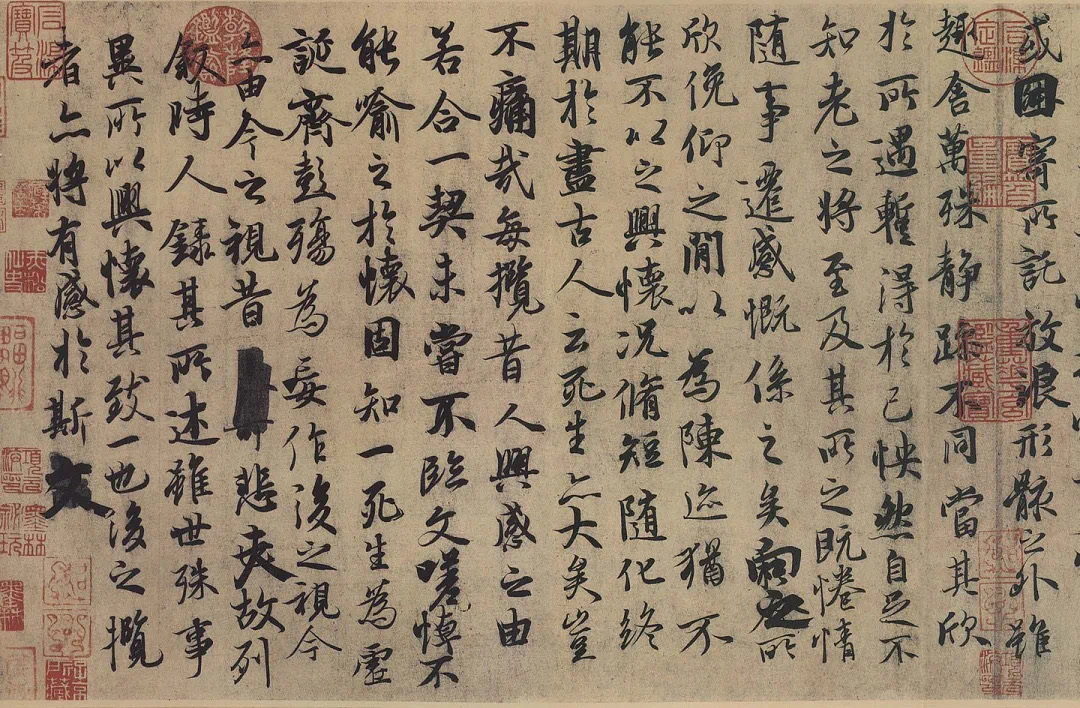 或因寄所託放浪形骸之外雖
趣舍萬殊静躁不同當其欣
於所遇暫得於己怏然自足不
知老之將至及其所之既惓情
隨事遷感慨係之矣向之所
欣俛仰之閒以為陳迹猶不
能不以之興懷况脩短隨化終
期於盡古人云死生亦大矣豈
不痛哉每攬昔人興感之由
若合一契未嘗不臨文嗟悼不
能喻之於懷固知一死生為虛
誕齊彭殤為妄作後之視今
亦由今之視昔悲夫故列
叙時人錄其所述雖世殊事
異所以興懷其致一也後之攬
者亦將有感於斯文